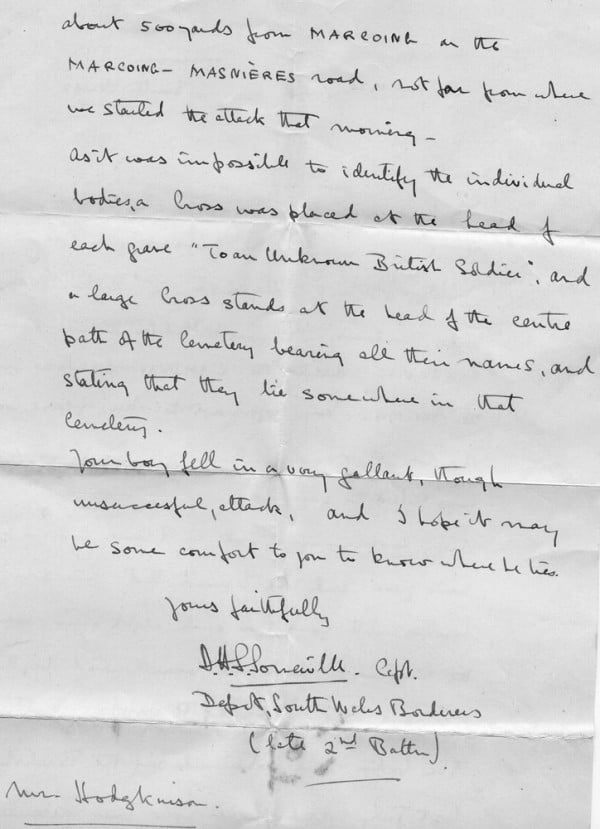 about 500 yards from MARCOING on the
MARCOING - MASNIÈRES road, not far from where
we started the attack that morning -
As it was impossible to identify the individual
bodies, a Cross was placed at the head of
each grave "To an Unknown British Soldier", and
a large Cross stands at the head of the centre
path of the Cemetery bearing all their names, and
stating that they lie somewhere in that
Cemetery.
Your boy fell in a very gallant, though
unsuccessful, attack, and I hope it may
be some comfort to you to know where he lies.
Yours faithfully
Somerville. Capt.
Depot, South Wales Borderers
(late 2nd Battn)
Hodgkinson.